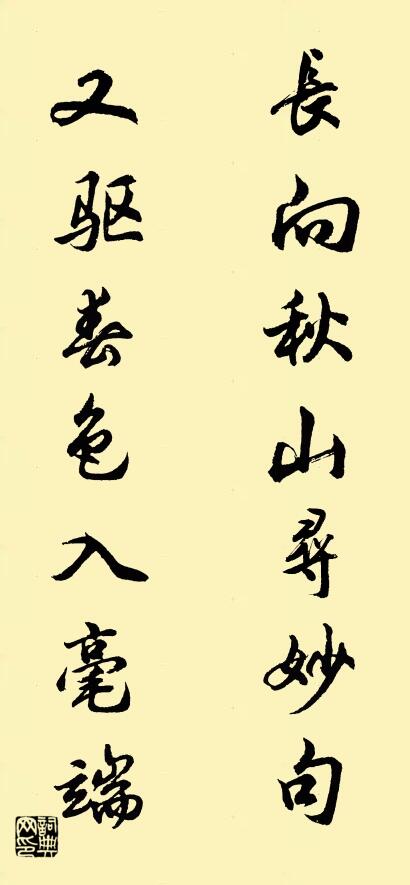 長向秋山尋妙句
又驱春色入毫端
詞典网印